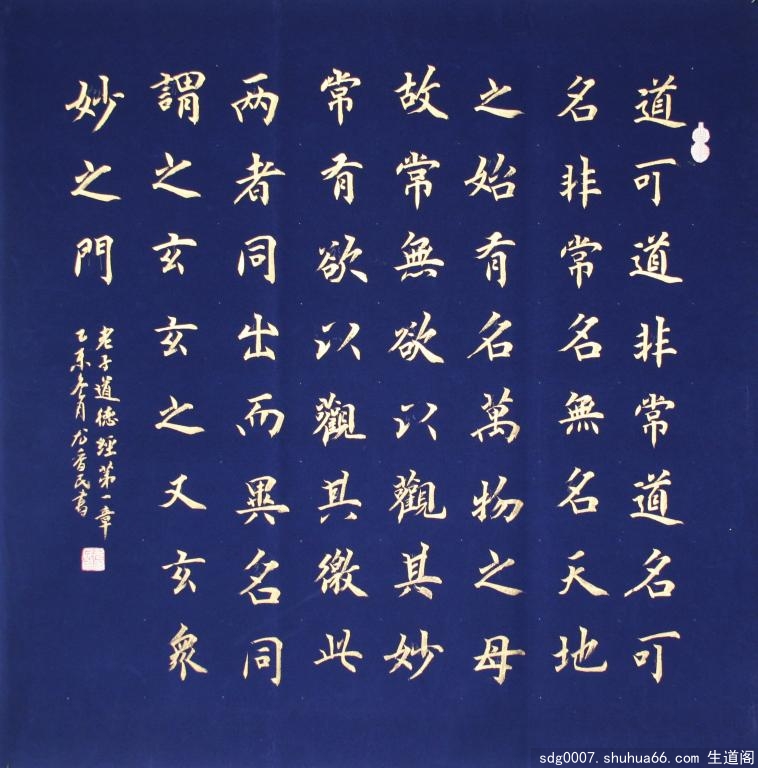 道可道非常道名可
名非常名無名天地
之始有名萬物之母
故常無欲以觀其妙
常有欲以觀其徼此
两者同出而異名同
謂之玄玄之又玄衆
妙之門
老子道德經第一章
乙未冬月民書
sdg0007.shuhua66.com 生道阁